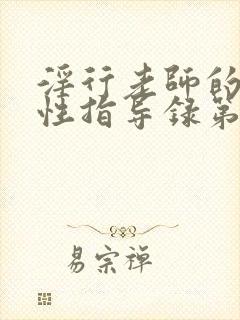 淫行老师的
性指导录第
易宗禅